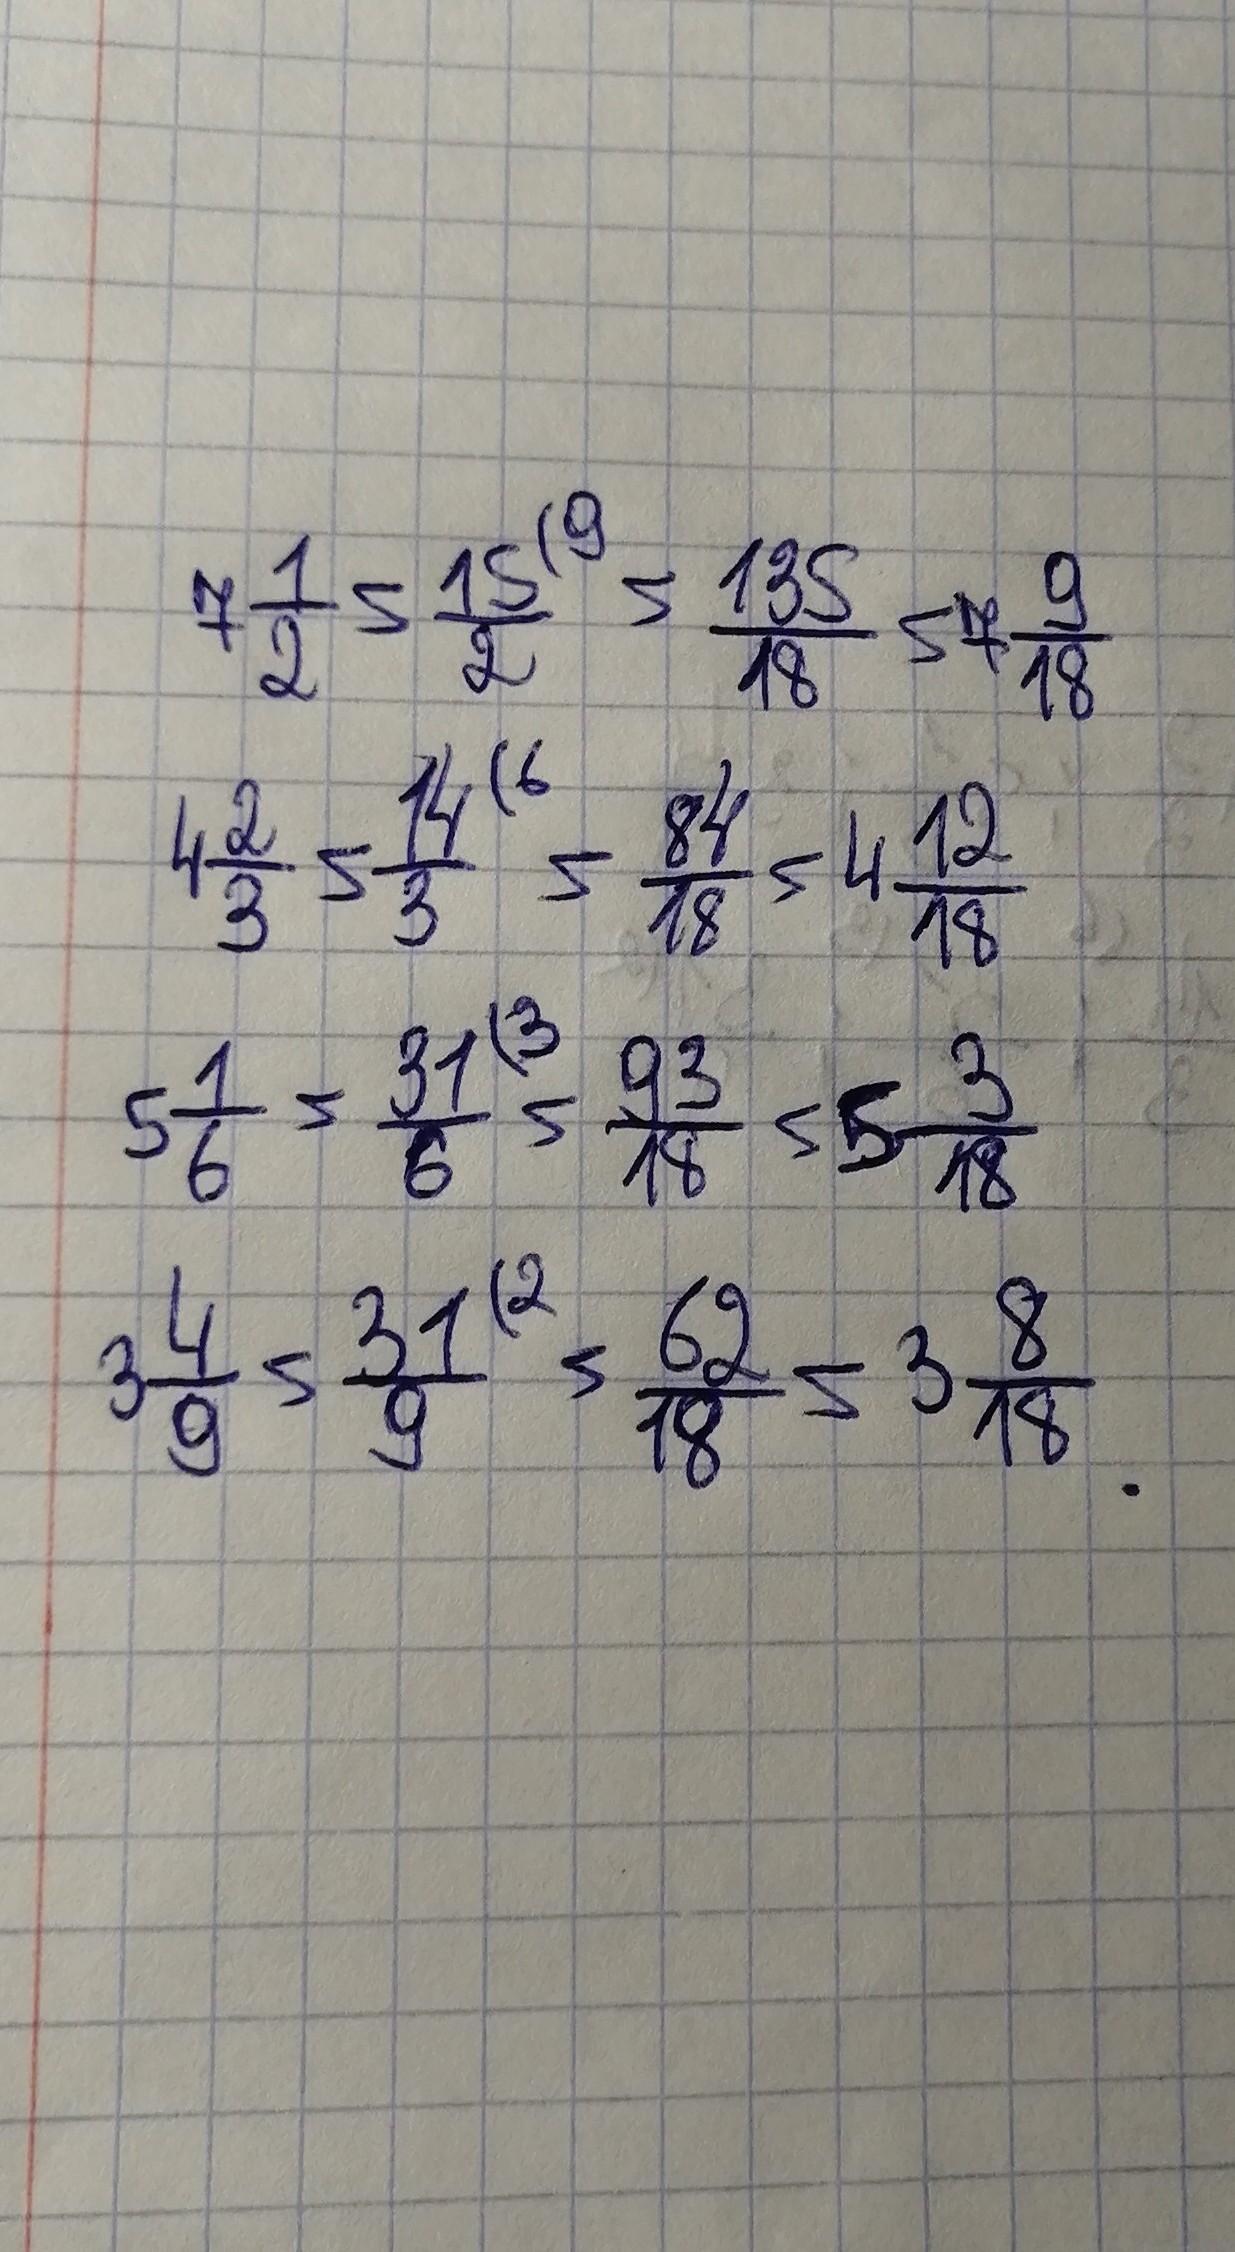 7 1/2 = 15/2 (9 = 135/18 = 7 9/18
4 2/3 = 14/3 (6 = 84/18 = 4 12/18
5 1/6 = 31/6 (3 = 93/18 = 5 3/18
3 4/9 = 31/9 (2 = 62/18 = 3 8/18.